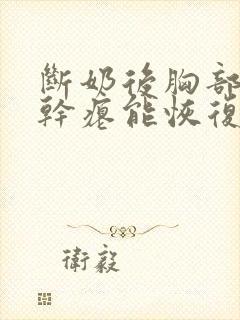 斷奶後胸部
幹癟能恢復
衛毅